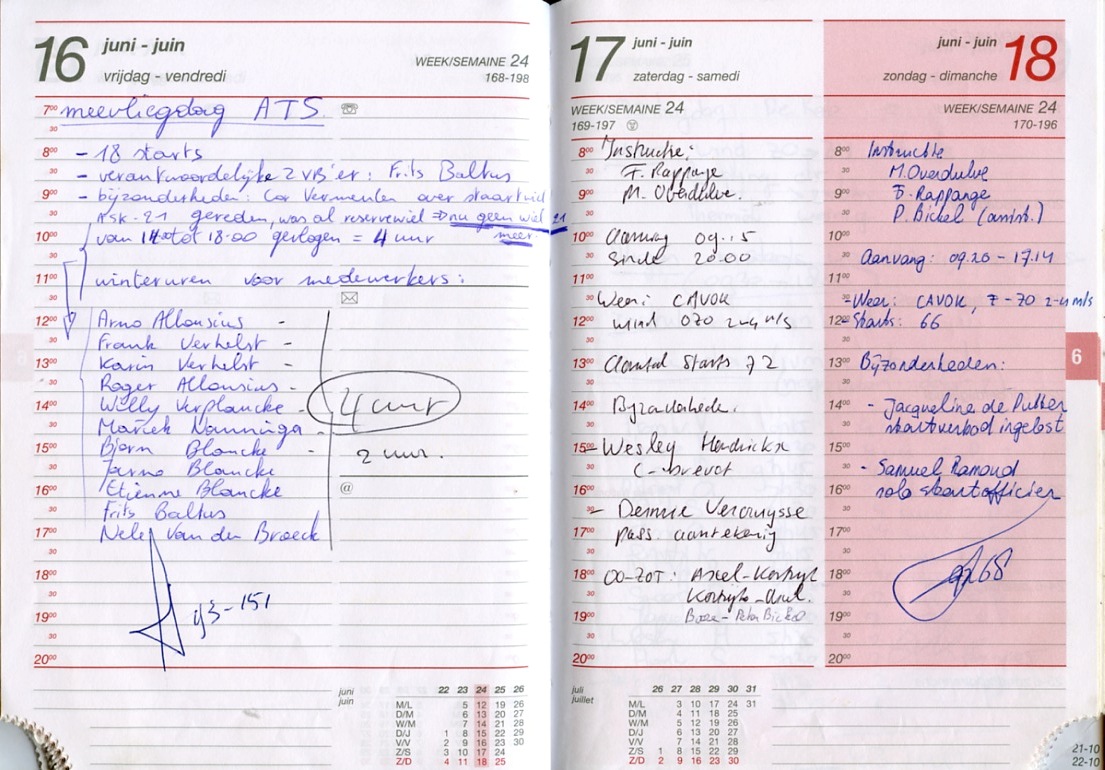 16
juni - juin
vrijdag - vendredi
WEEK/SEMAINE 24
168-198
7⁰⁰ meevliegdag ATS.
30
8⁰⁰ - 18 starts
30 - verantwoordelijke ZVB'er: Frits Baltus
9⁰⁰ - bijzonderheden: Cor Vermeulen over staartwiel
30 ASK-21 gereden, was al reservewiel ⇒ nu geen wiel 21
10⁰⁰ van 14 tot 18.00 gevlogen = 4 uur meer.
30
11⁰⁰ winteruren voor medewerkers:
30
12⁰⁰ Arno Allousius -
30 Frank Verhelst -
13⁰⁰ Karin Verhelst -
30 Roger Allousius -
14⁰⁰ Willy Verplancke - 4 uur
30 Mariek Nanninga -
15⁰⁰ Bjorn Blancke - 2 uur.
30 Jarno Blancke
16⁰⁰ Etienne Blancke @
30 Frits Baltus
17⁰⁰ Nele Van den Broeck
30
18⁰⁰
30
19⁰⁰ g3-151
30
20⁰⁰
juni
juin
22 23 24 25 26
M/L 5 12 19 26
D/M 6 13 20 27
W/M 7 14 21 28
D/J 1 8 15 22 29
V/V 2 9 16 23 30
Z/S 3 10 17 24
Z/D 4 11 18 25
17
juni - juin
zaterdag - samedi
WEEK/SEMAINE 24
169-197
8⁰⁰ Instructie:
30 F. Rappange
9⁰⁰ M. Overdulve.
30
10⁰⁰ Aanvang 09.15
30 Einde 20.00
11⁰⁰
30 Weer: CAVOK
12⁰⁰ wind 070 2-4 m/s
30
13⁰⁰ Aantal Starts 72
30
14⁰⁰ Byzonderhede.
30
15⁰⁰ - Wesley Hendrickx
30 C-brevet
16⁰⁰
30 - Dennie Vercruysse
17⁰⁰ pass. aantekenig
30
18⁰⁰ OO-ZOT: Axel-Kortryk
30 Kortryk-Axel.
19⁰⁰ - Peter Bickel
30
20⁰⁰
juli
juillet
26 27 28 29 30 31
M/L 3 10 17 24 31
D/M 4 11 18 25
W/M 5 12 19 26
D/J 6 13 20 27
V/V 7 14 21 28
Z/S 1 8 15 22 29
Z/D 2 9 16 23 30
juni - juin
18
zondag - dimanche
WEEK/SEMAINE 24
170-196
8⁰⁰ Instructie
30 M. Overdulve
9⁰⁰ F. Rappange
30 P. Bickel (assist.)
10⁰⁰
30 Aanvang: 09.20 - 17.14
11⁰⁰
30 - Weer: CAVOK, 7-70 2-4 m/s
12⁰⁰ - Starts: 66
30
13⁰⁰ Bijzonderheden:
30
14⁰⁰ - Jacqueline de Putter
30 startverbod ingelost
15⁰⁰
30 - Samuel Ramoud
16⁰⁰ solo startofficier
30
17⁰⁰
30
18⁰⁰
30
19⁰⁰
30
20⁰⁰
6
21-10
22-10